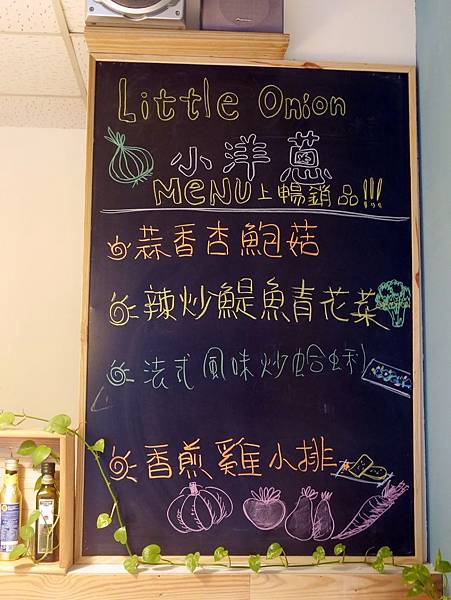 Little Onion
小洋蔥
MENU上暢銷品!!!
蒜香杏鮑菇
辣炒鯷魚青花菜
法式風味炒蛤蜊
香煎雞小排